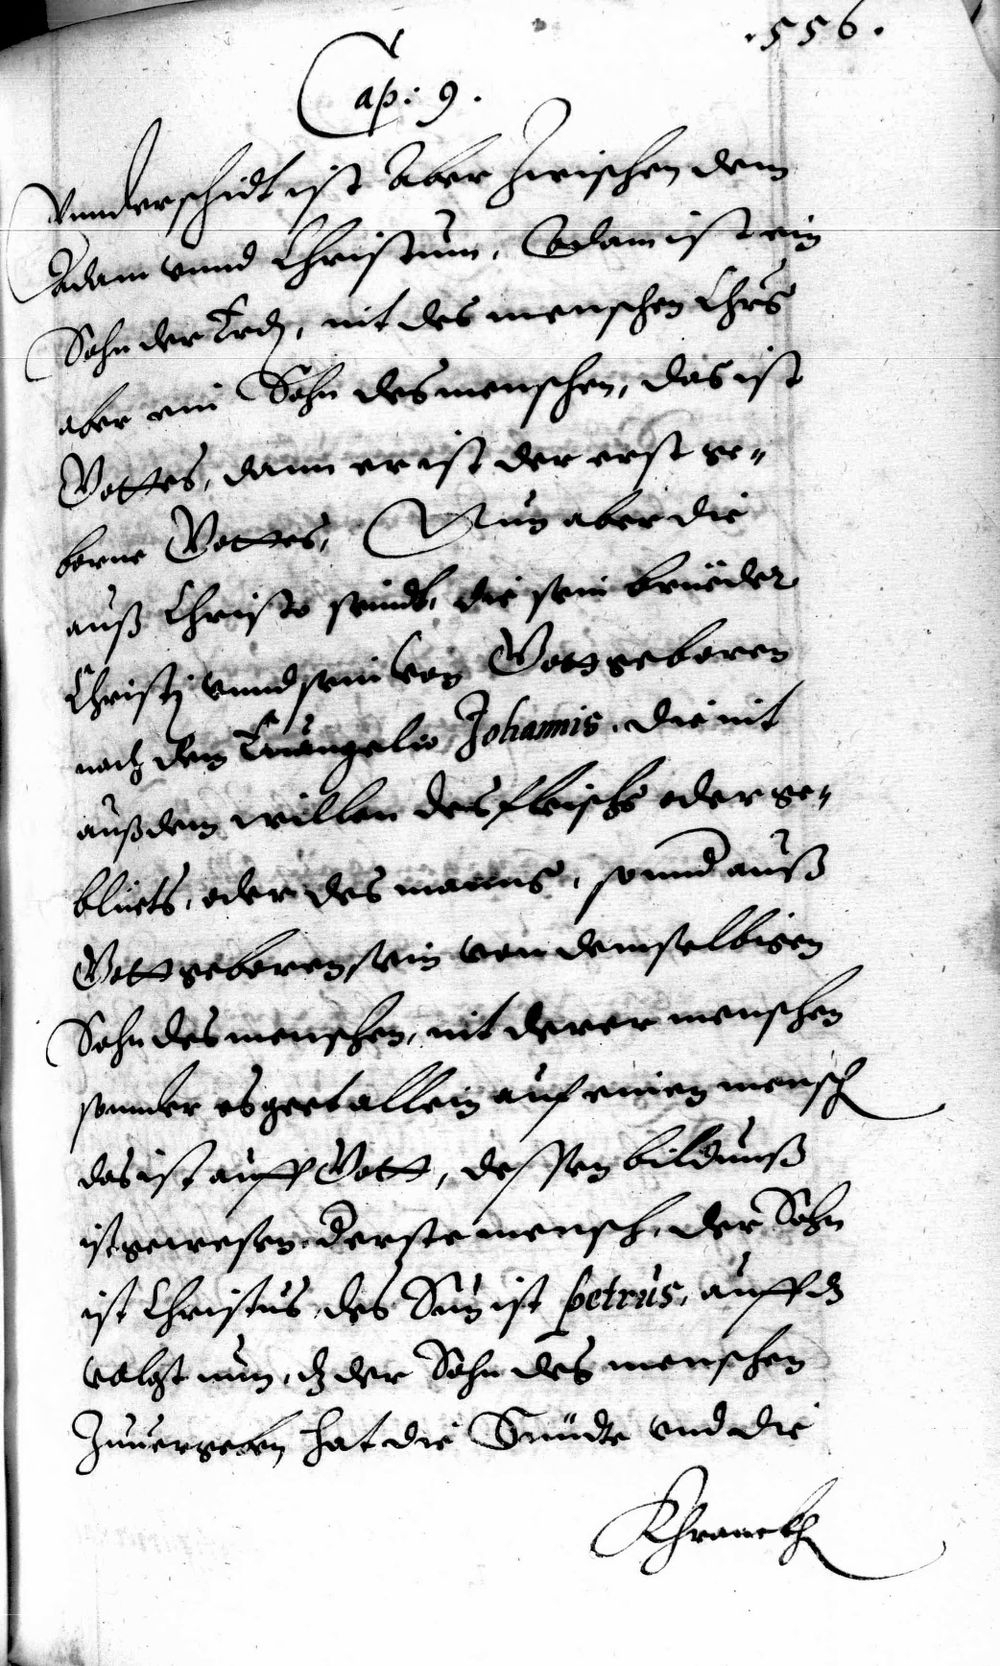 .556.
Cap: 9.
Vnnderschidt ist Aber zwischen dem
Adam vnnd Christum, Adam ist ein
Sohn der Erdn, nit des menschen Chrs
aber ein Sohn des menschen, das ist
Gottes, dann er ist der erst ge„
borne Gottes, Nun aber die
auß Christo seindt, die sein brüeder
Christj vnnd sein von Gott geboren
nach dem Euangelio Johannis. die nit
auß dem willen des fleischs oder ge„
blüets, oder des manns, sonnd auß
Gott geboren sein von demselbigen
Sohn des menschen, nit derer menschen
sonnder es geet allein auf einen mensch
das ist auff Gott, dessen bildnuß
ist gewesen d erste mensch, der Sohn
ist Christus, des Sun ist petrus, auff dz
volgt nun, dz der Sohn des menschen
Zuuergeben hat die Sünde vnd die
Khranckh